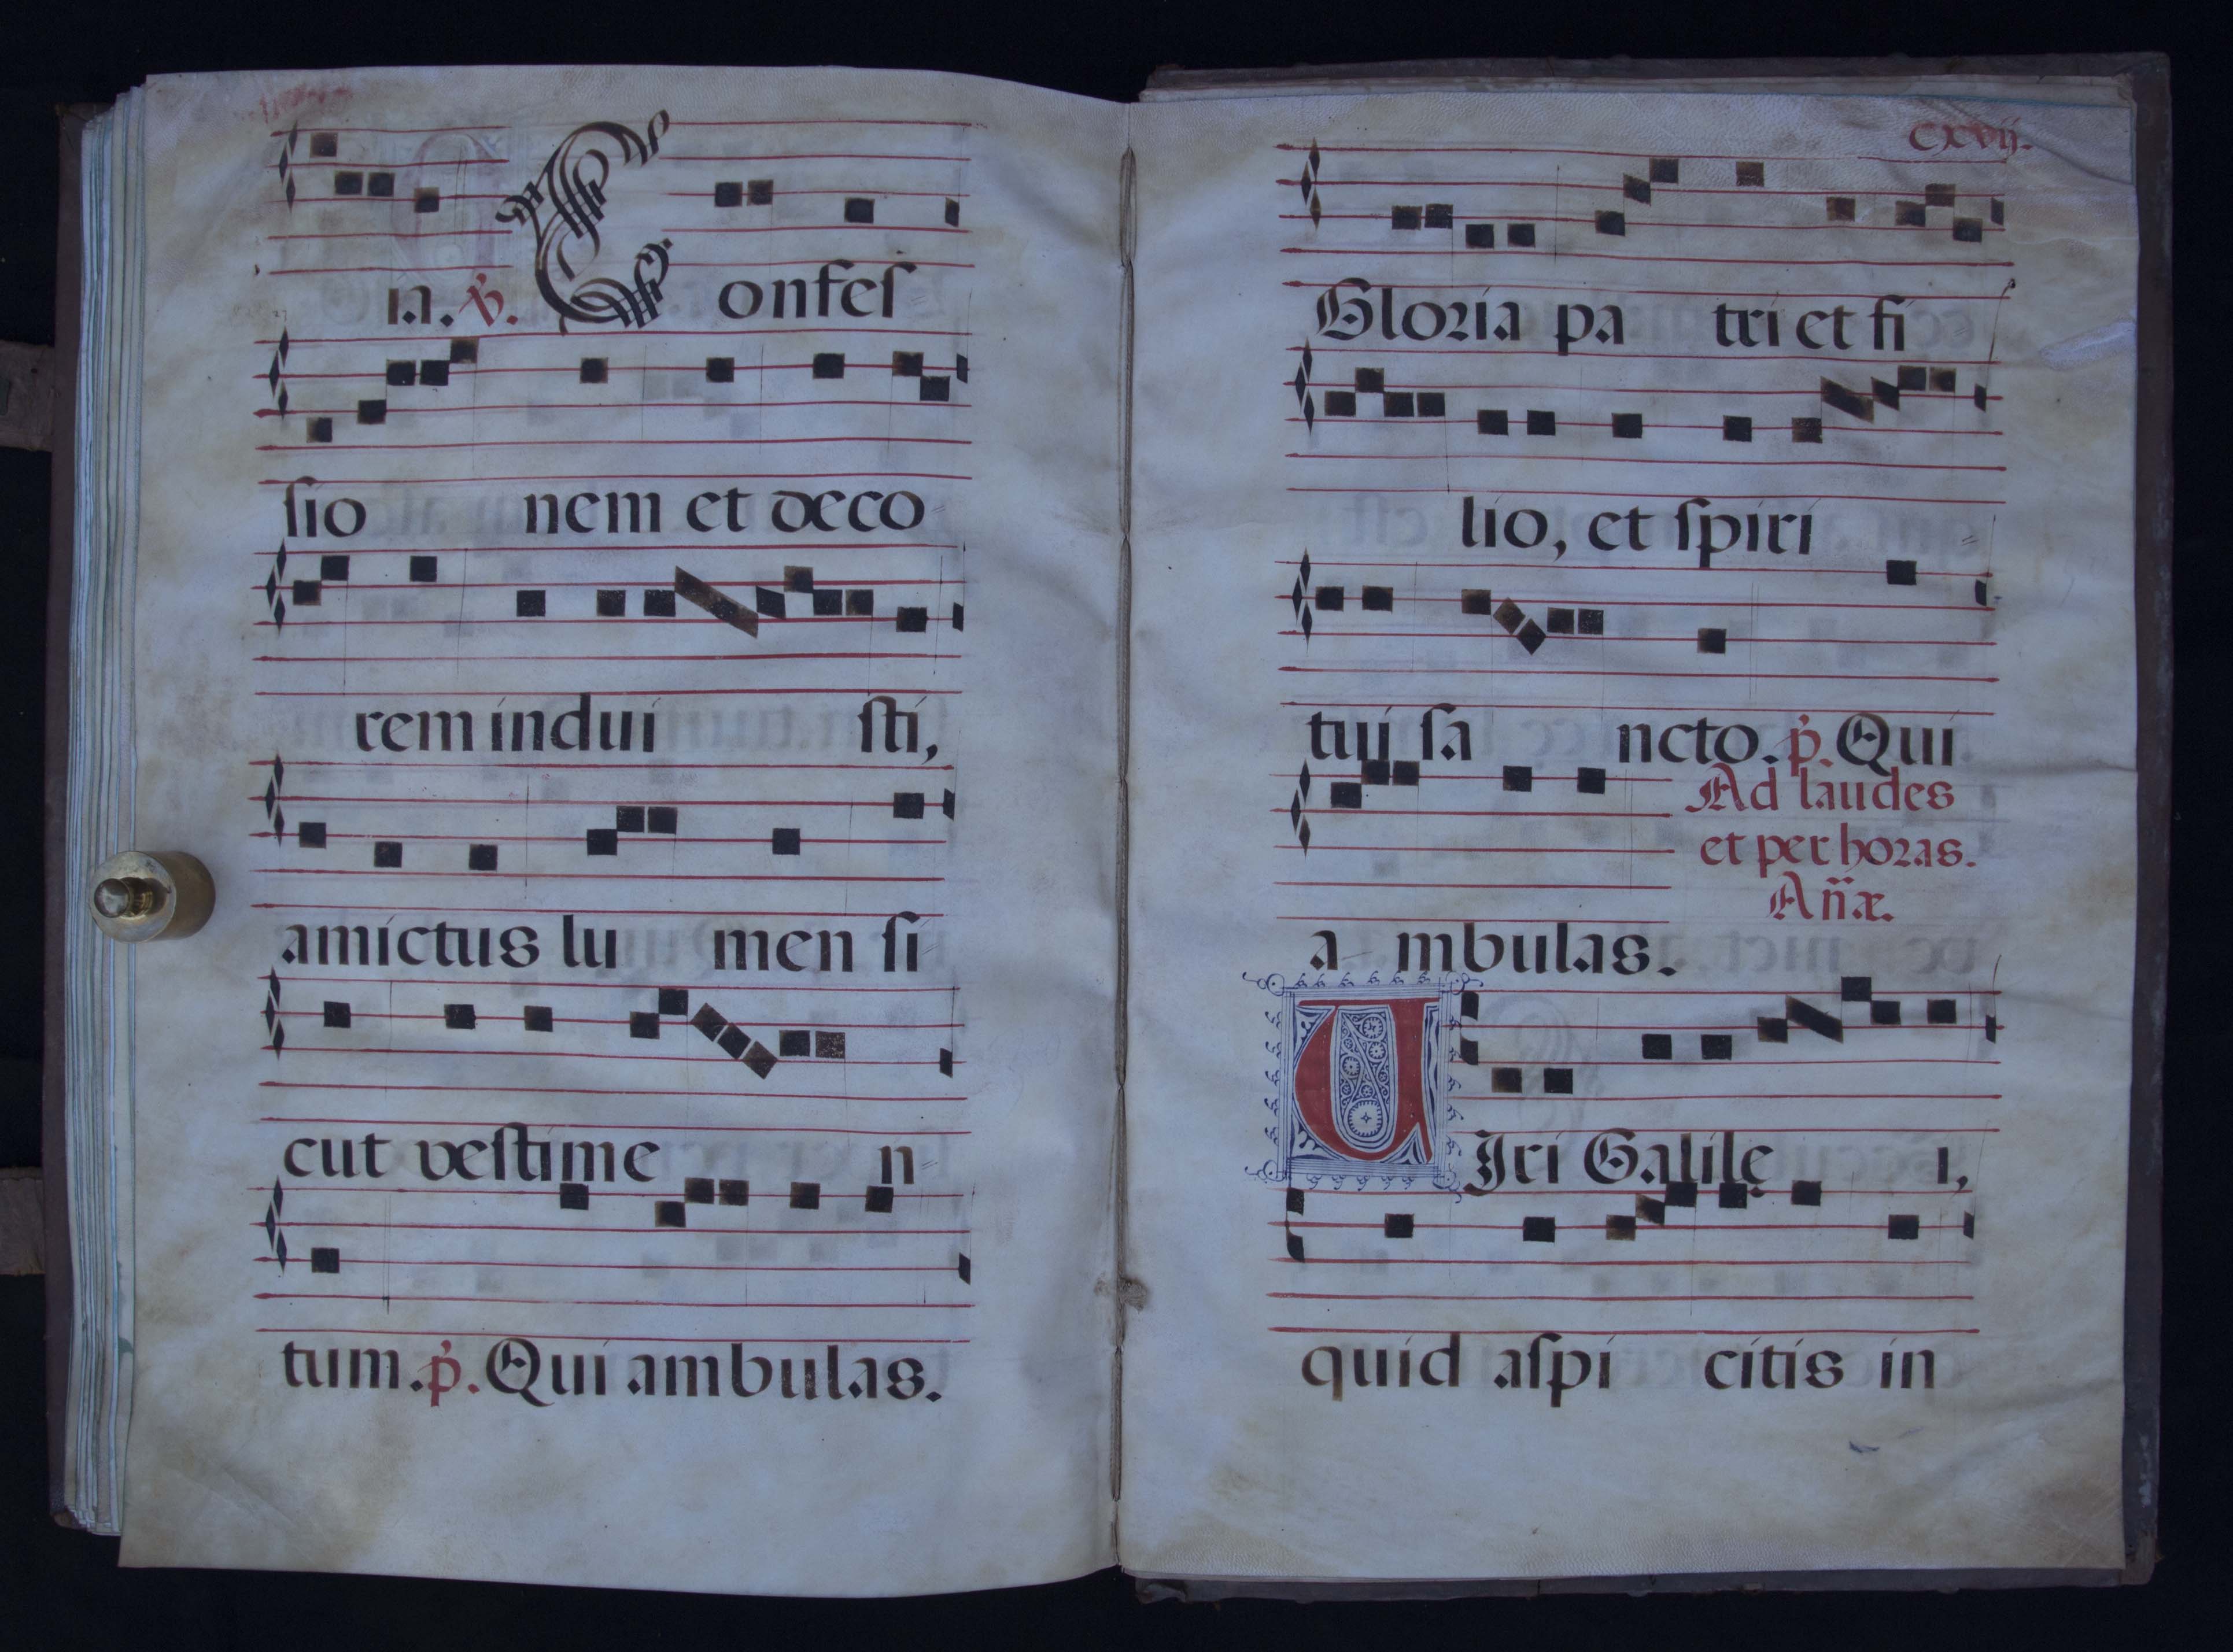 a. ℣. Confeſ
ſio nem et deco
rem indui ſti,
amictus lu men ſi
cut veſtime n
tum. p̓. Qui ambulas.
cxvij.
Gloria pa tri et fi
lio, et ſpiri
tui ſa ncto. p̓. Qui
a mbulas.
Ad laudes
et per horas.
Añæ.
VIri Galilę i,
quid aſpi citis in